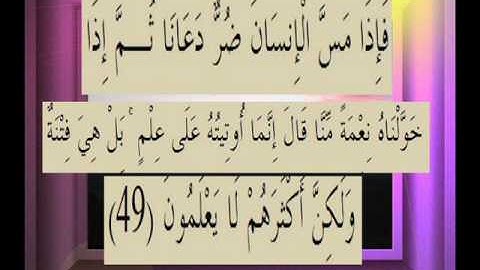 فَإِذَا مَسَّ الْإِنسَانَ ضُرٌّ دَعَانَا ثُــمَّ إِذَا
خَوَّلْنَاهُ نِعْمَةً مِّنَّا قَالَ إِنَّمَا أُوتِيتُهُ عَلَى عِلْمٍ ۚ بَلْ هِيَ فِتْنَةٌ
وَلَكِنَّ أَكْثَرَهُمْ لَا يَعْلَمُونَ (49)